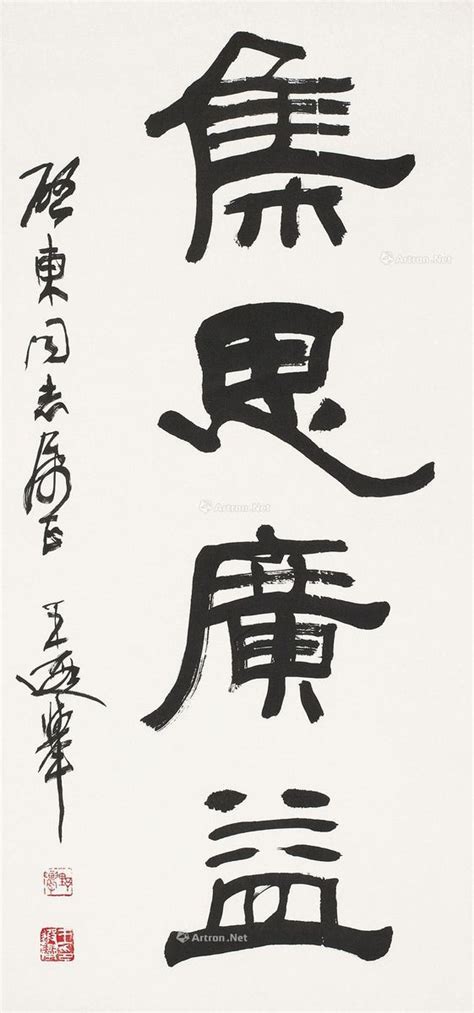 集思廣益
啓東同志属正 王遐舉
Artron.Net
Artron.Net
Artron.Net